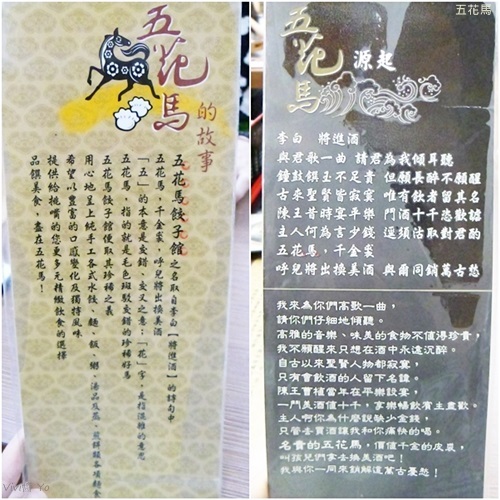 五花馬
的故事
五花馬餃子館之名取自李白【將進酒】的詩句中
五花馬,千金裘,呼兒將出換美酒
「五」的本意是交錯、交叉之意;「花」字,是指混雜的意思
五花馬,指的就是毛色斑駁交錯的珍稀好馬
五花馬餃子館便取其珍稀之義
用心地呈上純手工各式水餃、麵、飯、粥、湯品及蒸、煎鮮酸各項麵食
希望以豐富的口感變化及獨特風味
提供給挑嘴的您更多元精緻飲食的選擇
品饌美食,盡在五花馬!
Vivian Yo
五花馬
五花馬
源起
李白 將進酒
與君歌一曲 請君為我傾耳聽
鐘鼓饌玉不足貴 但願長醉不願醒
古來聖賢皆寂寞 唯有飲者留其名
陳王昔時宴平樂 鬥酒十千恣歡謔
主人何為言少錢 逕須沽取對君酌
五花馬,千金裘
呼兒將出換美酒 與爾同銷萬古愁
我來為你們高歌一曲,
請你們仔細地傾聽。
高雅的音樂、味美的食物不值得珍貴,
我不願醒來只想在酒中永遠沉醉。
自古以來聖賢人物都寂寞,
只有會飲酒的人留下名諱。
陳王曹植當年在平樂設宴,
一鬥美酒值十千,享樂暢飲賓主盡歡。
主人啊你為什麼說缺少金錢,
只管去買酒讓我和你痛快的喝。
名貴的五花馬,價值千金的皮裘,
叫孩兒們拿去換美酒吧!
我與你一同來銷解這萬古憂愁!